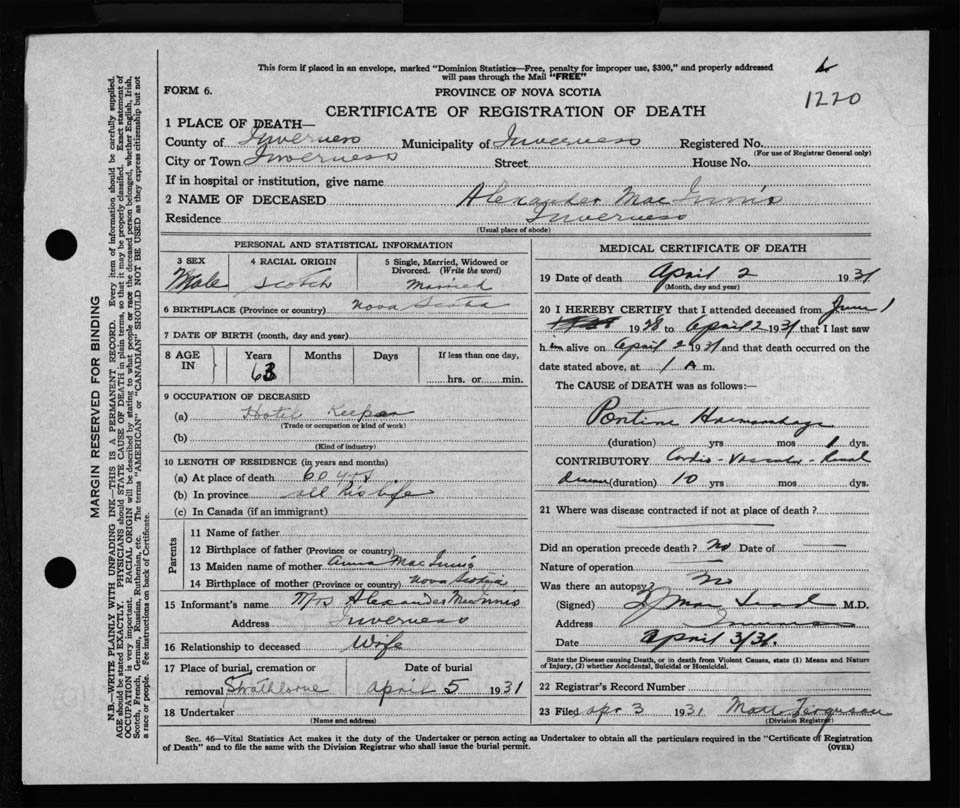 This form if placed in an envelope, marked "Dominion Statistics—Free, penalty for improper use, $300," and properly addressed
will pass through the Mail "FREE"
1220
FORM 6.
PROVINCE OF NOVA SCOTIA
CERTIFICATE OF REGISTRATION OF DEATH
1 PLACE OF DEATH—
County of Inverness Municipality of Inverness Registered No.
(For use of Registrar General only)
City or Town Inverness Street House No.
If in hospital or institution, give name
2 NAME OF DECEASED Alexander MacInnis
Residence Inverness
(Usual place of abode)
PERSONAL AND STATISTICAL INFORMATION
3 SEX Male
4 RACIAL ORIGIN Scotch
5 Single, Married, Widowed or Divorced. (Write the word) Married
6 BIRTHPLACE (Province or country) Nova Scotia
7 DATE OF BIRTH (month, day and year)
8 AGE IN Years Months Days If less than one day,
63 hrs. or min.
9 OCCUPATION OF DECEASED
(a) Hotel Keeper
(Trade or occupation or kind of work)
(b)
(Kind of industry)
10 LENGTH OF RESIDENCE (in years and months)
(a) At place of death 60 yrs.
(b) In province all his life
(c) In Canada (if an immigrant)
Parents
11 Name of father
12 Birthplace of father (Province or country)
13 Maiden name of mother Anna MacInnis
14 Birthplace of mother (Province or country) Nova Scotia
15 Informant's name Mrs Alexander MacInnis
Address Inverness
16 Relationship to deceased Wife
17 Place of burial, cremation or Date of burial
removal Strathlorne April 5 1931
18 Undertaker
(Name and address)
MEDICAL CERTIFICATE OF DEATH
19 Date of death April 2 1931
(Month, day and year)
20 I HEREBY CERTIFY that I attended deceased from June 1
1928 to April 2 1931 that I last saw
him alive on April 2 1931 and that death occurred on the
date stated above, at 1 A m.
The CAUSE of DEATH was as follows:—
Pontine Haemorrhage
(duration) yrs mos 1 dys.
CONTRIBUTORY Cardio-Vascular-Renal
(duration) 10 yrs mos dys.
21 Where was disease contracted if not at place of death?
Did an operation precede death? No Date of
Nature of operation
Was there an autopsy? No
(Signed) M.D.
Address Inverness
Date April 3/31.
State the Disease causing Death, or in death from Violent Causes, state (1) Means and Nature
of Injury, (2) whether Accidental, Suicidal or Homicidal.
22 Registrar's Record Number
23 Filed Apr 3 1931 Matt Ferguson
(Division Registrar)
Sec. 46—Vital Statistics Act makes it the duty of the Undertaker or person acting as Undertaker to obtain all the particulars required in the "Certificate of Registration
of Death" and to file the same with the Division Registrar who shall issue the burial permit.
(OVER)
MARGIN RESERVED FOR BINDING
N.B.—WRITE PLAINLY WITH UNFADING INK—THIS IS A PERMANENT RECORD. Every item of information should be carefully supplied.
AGE should be stated EXACTLY. PHYSICIANS should STATE CAUSE OF DEATH in plain terms, so that it may be properly classified. Exact statement of
OCCUPATION is very important. RACIAL ORIGIN will be described by stating to what people or race the deceased person belonged, whether English, Irish,
Scotch, French, German, Russian, Ruthenian, etc. The terms "AMERICAN" or "CANADIAN" SHOULD NOT BE USED as they express citizenship but not
a race or people. Fee instructions on back of Certificate.